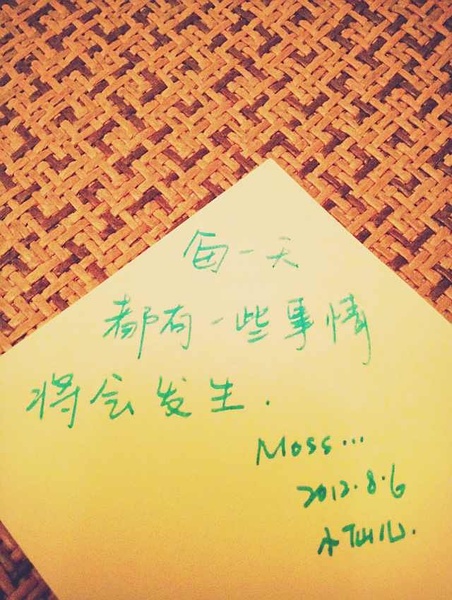 每一天
都有一些事情
将会发生.
Moss...
2012.8.6